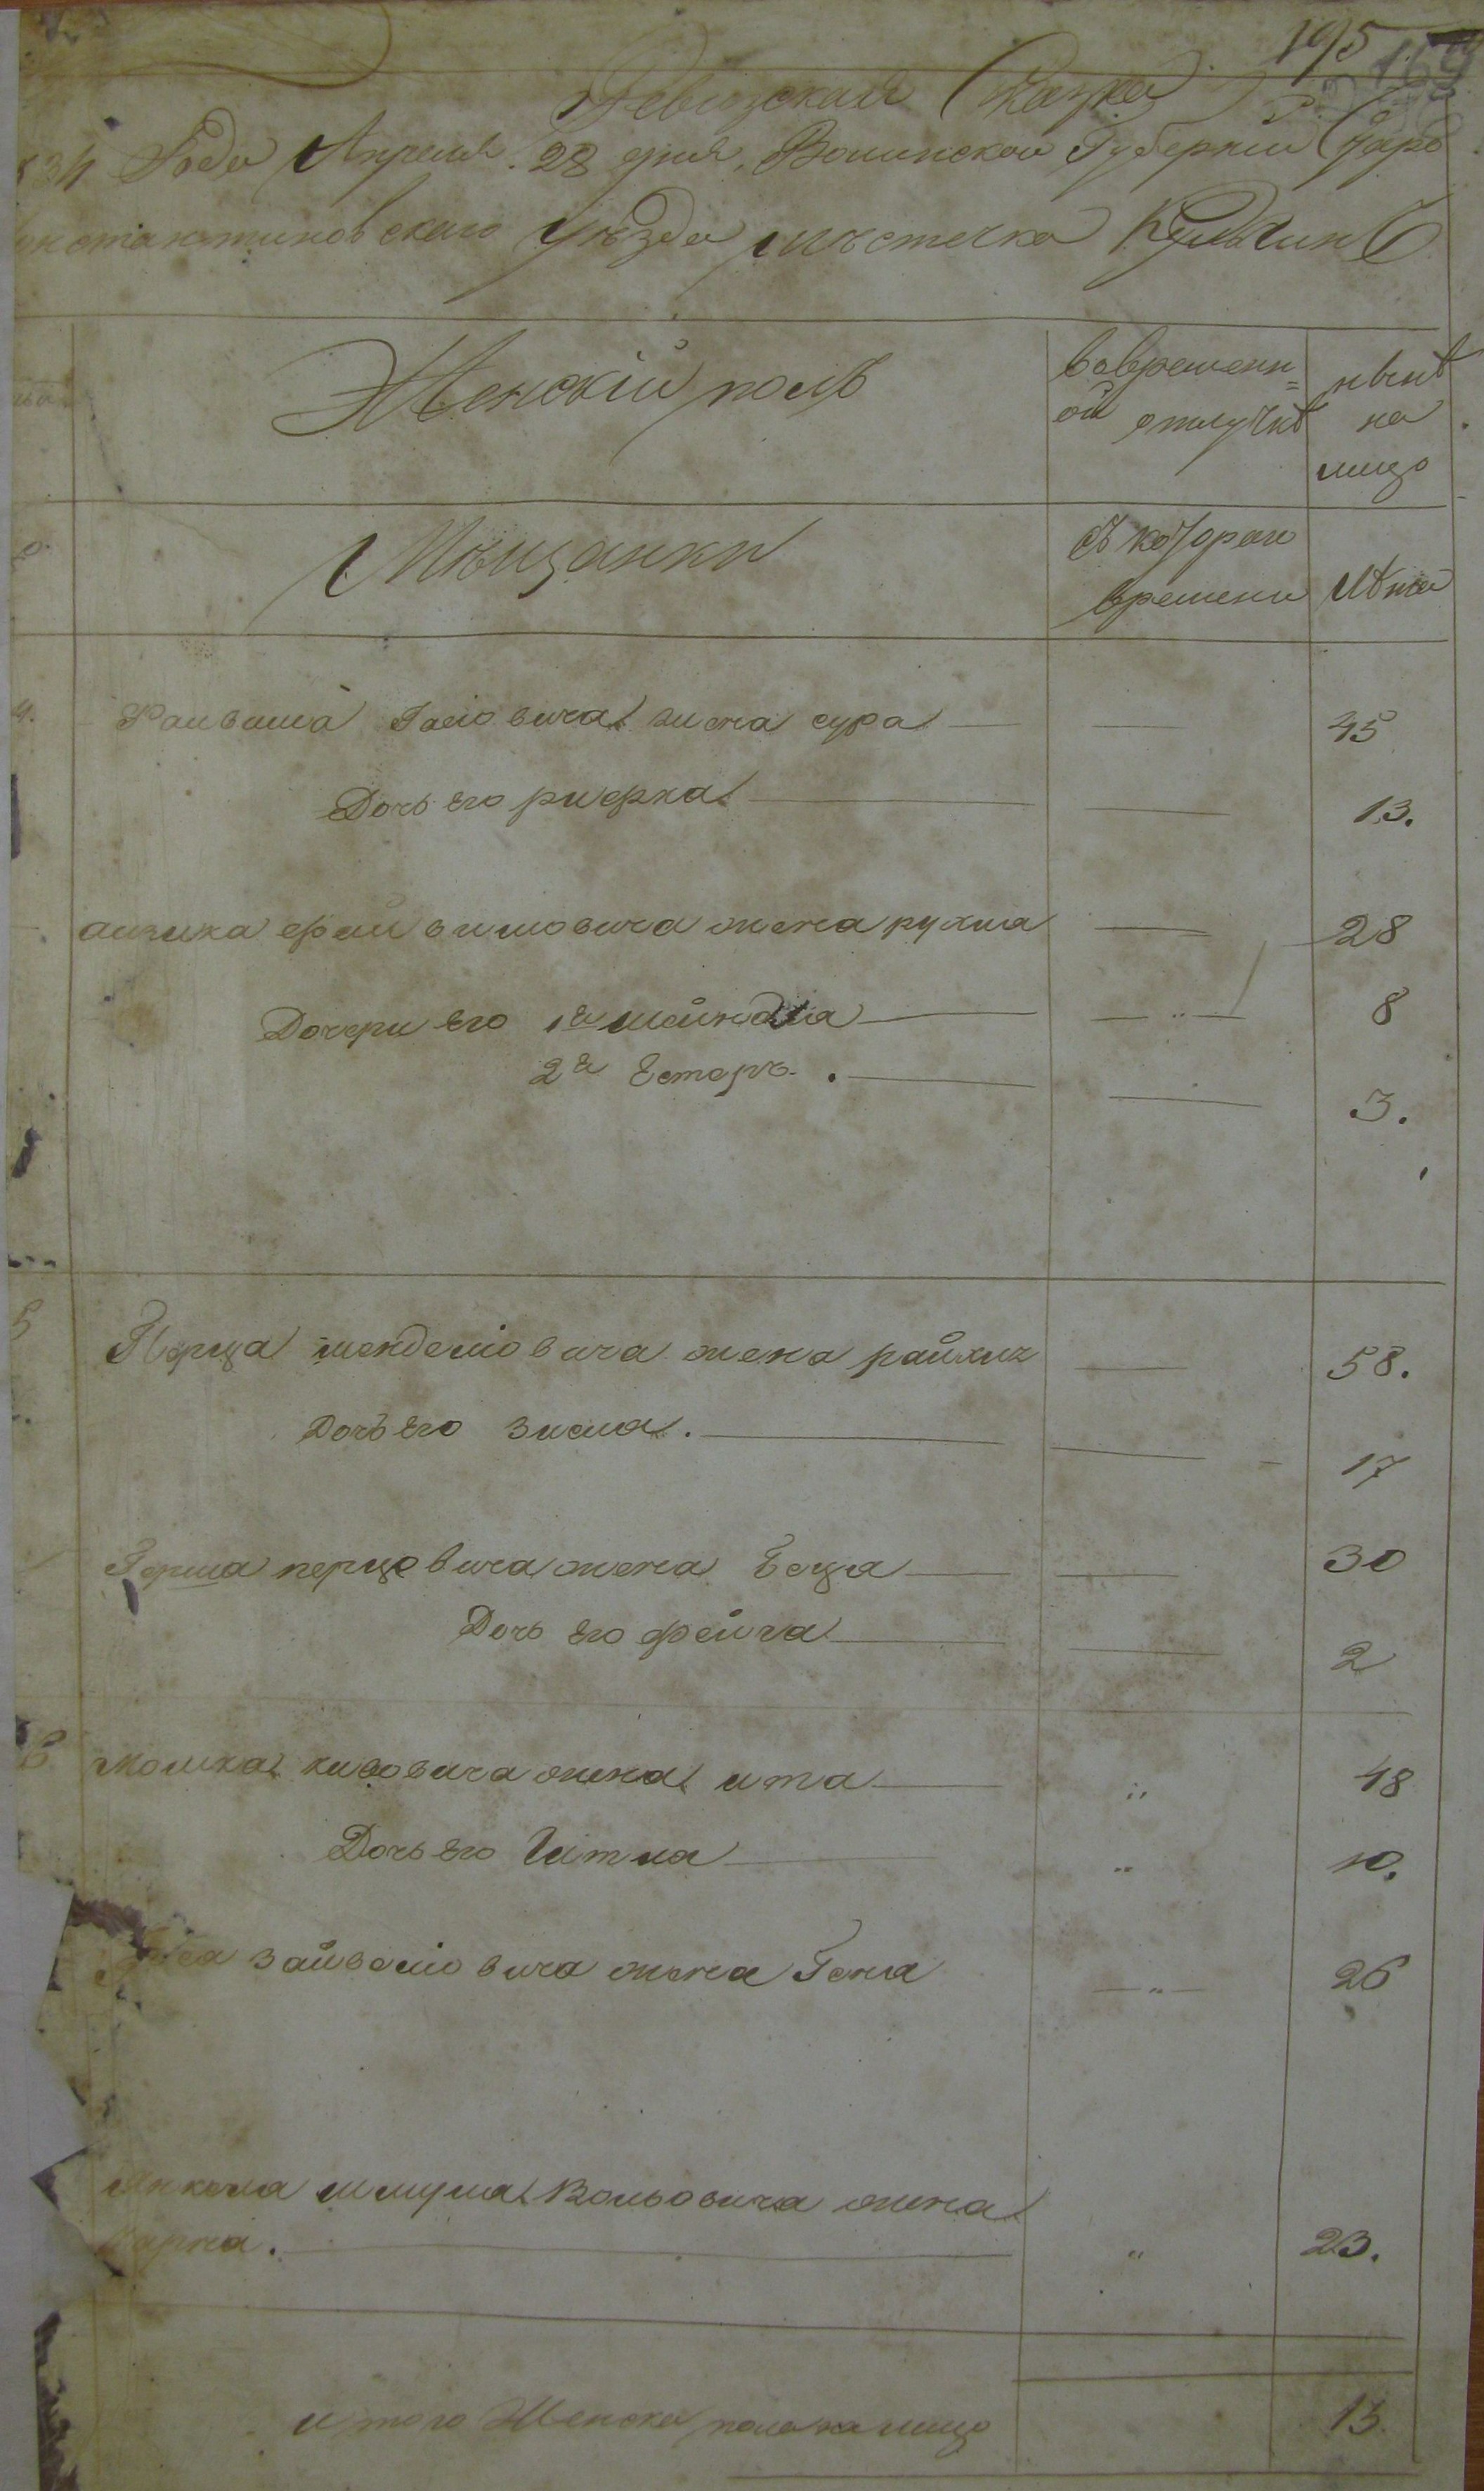 195
Ревизская Сказка
834 Года Апреля 28 дня, Волинской Губернии Старо
константиновскаго Уѣзда мѣстечка Кульчинъ
Женскій полъ
Вовременн=
ой отлучкѣ
нынѣ
на
лицо
Мѣщанки
съ котораго
времени
Лѣта
4.
Файвиша Iосiовича жена сура
45
Дочь Его рифка
13.
аизика файвишовича жена рухля
28
Дочери Его 1я шейндля
8
2я Естеръ.
3.
5
Перца менделiовича жена райхиль
58.
Дочь Его зисля.
17
Герша перцовича жена Беца
30
Дочь Его фейга
2
6
Мошка кивовича жена ита
48
Дочь Его Гитля
10.
зайвелiовича жена Геня
26
Янкеля шмуля Вольовича жена
23.
итого Женска пола на лицо
13